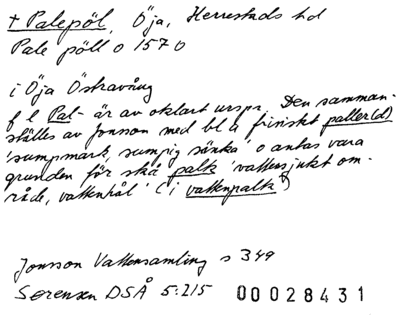 + Palepöl, Öja, Herrestads hd
Pale pöll o 1570
i Öja Östravång
f l Pal- är av oklart urspr. Den samman-
ställes av Jonsson med bl a frisiskt paller(d)
'sumpmark, sumpig sänka' o antas vara
grunden för skå palk 'vattensjukt om-
råde, vattenhål' (i vattenpalk)
Jonsson Vattensamling s 349
Sørensen DSÅ 5:215 00028431